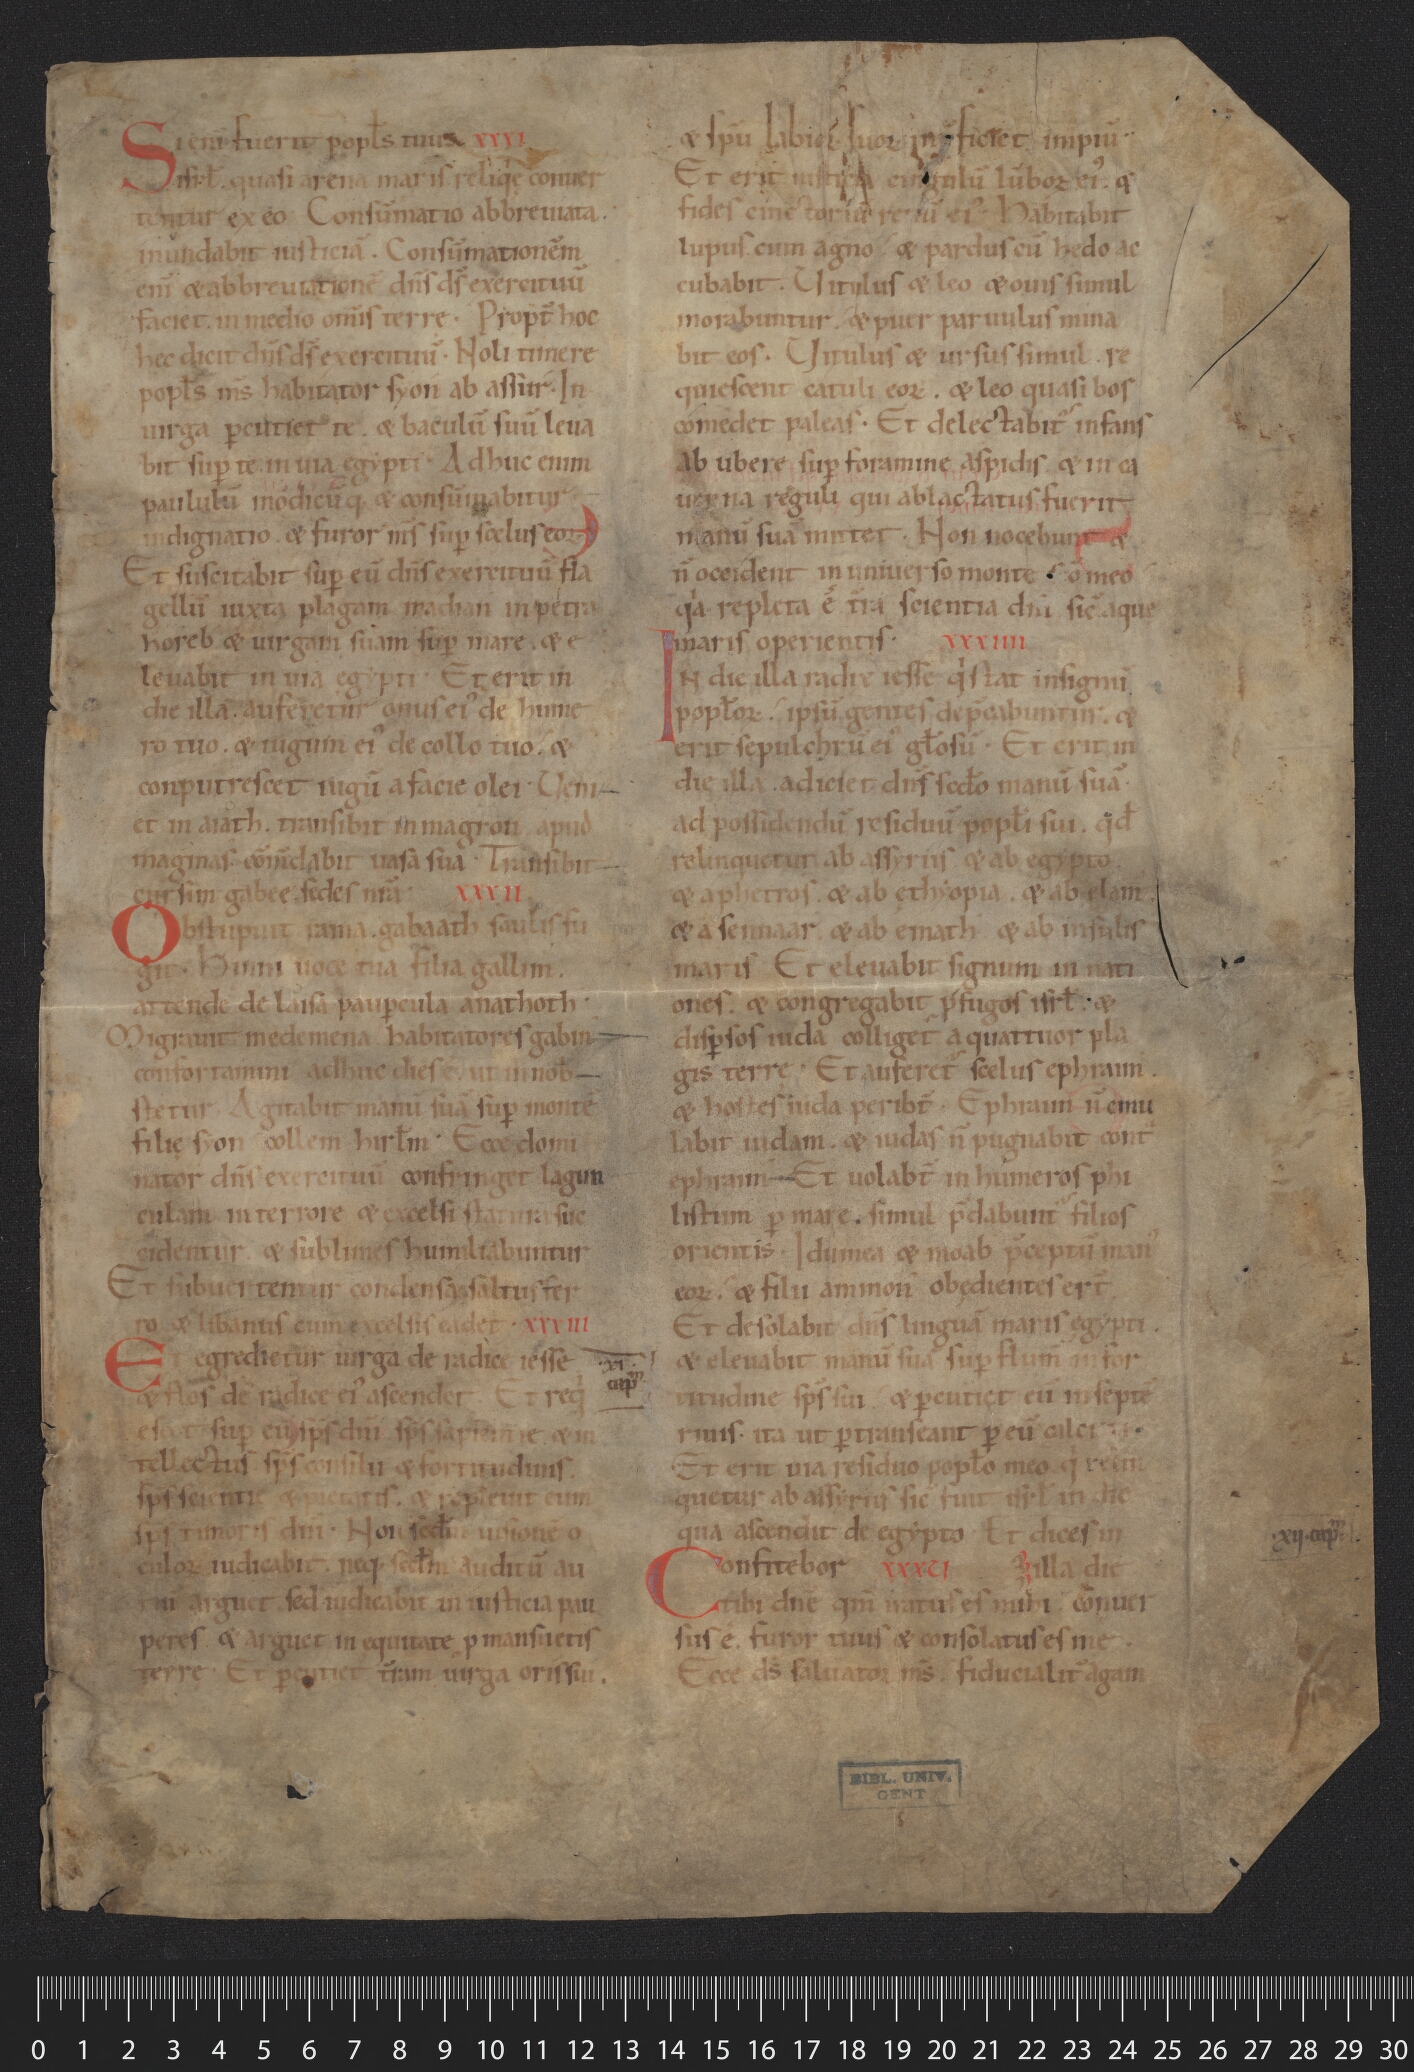 Si enī fuerit popl̄s tuus XXXI
isrl̄. quasi arena maris reliq̄ę conuer
tentur ex eo. Consūmatio abbreuiata.
inundabit iusticiā. Consūmationēm
enī ⁊ abbreuiationē dn̄s ds̄ exercituū
faciet in medio om̄is terre. Propt̄ hoc
hec dicit dn̄s ds̄ exercituū. Noli timere
popl̄s ms̄ habitator syon ab assur. In
uirga ꝑcutiet te. ⁊ baculū suū leua
bit suꝑ te in uia egypti. Adhuc enim
paululū modicūq; ⁊ consūmabitur
indignatio. ⁊ furor ms̄ suꝑ scelus eoꝝ
Et suscitabit suꝑ eū dn̄s exercituū fla
gellū iuxta plagam madian in petra
horeb ⁊ uirgam suam suꝑ mare. ⁊ e
leuabit in uia egypti. Et erit in
die illa. auferetur onus ei' de hume
ro tuo. ⁊ iugum ei' de collo tuo. ⁊
conputrescet iugū a facie olei. Ueni
et in aiath. transibit in magron apud
maginas cōm̄dabit uasa sua. Transibit
cursim gabee. sedes nr̄a XXXII
Obstupuit rama. gabaath saulis fu
git. Hinni uoce tua filia gallim.
attende de laisa pauꝑcula anathoth.
Migrauit medemena habitatores gabin
confortamini adhuc dies ē. ut in nob
stetur. Agitabit manū suā suꝑ montē
filię syon collem hirl̄m. Ecce domi
nator dn̄s exercituū confringet lagun
culam in terrore ⁊ excelsi statura suc
cidentur. ⁊ sublimes humiliabuntur
Et subuertentur condensa saltus fer
ro. ⁊ libanus cum excelsis cadet. XXXIII
Et egredietur uirga de radice iesse
.xi. cap̄m
⁊ flos de radice ei' ascendet. Et req
escet suꝑ eū sps̄ dn̄i sps̄ sapientie ⁊ in
tellectus sps̄ consilii ⁊ fortitudinis.
sps̄ scientie ⁊ pietatis. ⁊ replebit eum
sps̄ timoris dn̄i. Non scd̄m uisionē o
culoꝝ iudicabit. neq; scd̄m auditū au
riū arguet. sed iudicabit in iusticia pau
peres. ⁊ arguet in equitate ꝓ mansuetis
terre. Et ꝑcutiet tr̄am uirga oris sui.
⁊ spū labioꝝ suoꝝ int̄ficiet impiū.
Et erit iusticia cingulū lūboꝝ ei'. ⁊
fides cinctoriū renū ei'. Habitabit
lupus cum agno. ⁊ pardus cū hedo ac
cubabit. Uitulus ⁊ leo ⁊ ouis simul
morabuntur. ⁊ puer paruulus mina
bit eos. Uitulus ⁊ ursus simul re
quiescent catuli eoꝝ. ⁊ leo quasi bos
comedet paleas. Et delectabit̄ infans
ab ubere suꝑ foramine aspidis ⁊ in ca
uerna reguli qui ablactatus fuerit
manū suā mittet. Non nocebunt ⁊
n̄ occident in uniuerso monte sc̄o meo
q̄a repleta ē t̄ra scientia dn̄i sic̄ aque
maris operientis. XXXIIII
In die illa radix iesse q̄ stat in signū
popl̄oꝝ. ipsū gentes dep̄cabuntur. ⁊
erit sepulchrū ei' gl̄osū. Et erit in
die illa. adiciet dn̄s scd̄o manū suā
ad possidendū residuū popl̄i sui. q̄d
relinquetur ab assyriis ⁊ ab egypto
⁊ a phetros. ⁊ ab ethyopia. ⁊ ab elam.
⁊ a sennaar ⁊ ab emath ⁊ ab insulis
maris Et eleuabit signum in nati
ones. ⁊ congregabit ꝓfugos isrl̄. ⁊
disꝑsos iuda colliget a quattuor pla
gis terre. Et auferet̄ scelus ephraim.
⁊ hostes iuda peribt̄. Ephraim n̄ emu
labit iudam. ⁊ iudas n̄ pugnabit cont̄
ephraim Et uolabt̄ in humeros phi
listiim ꝑ mare. simul p̄dabunt̄ filios
orientis. Idumea ⁊ moab p̄ceptū man'
eoꝝ. ⁊ filii ammon obędientes er̄t
Et desolabit dn̄s linguā maris egypti.
⁊ eleuabit manū suā suꝑ flum̄ in for
titudine sps̄ sui. ⁊ ꝑcutiet eū in septē
riuis. ita ut ꝑtranseant ꝑ eū calci
Et erit uia residuo popl̄o meo q̄ relin
quetur ab assyriis sic̄ fuit isrl̄ in die
qua ascendit de egypto Et dices in
.xij. cap̄m
Confitebor XXXVI illa die
tibi dn̄e qm̄ iratus es mihi. conuer
sus ē. furor tuus ⁊ consolatus es me.
Ecce ds̄ saluator ms̄. fiducialit̄ agam
BIBL. UNIV.
GENT
0 1 2 3 4 5 6 7 8 9 10 11 12 13 14 15 16 17 18 19 20 21 22 23 24 25 26 27 28 29 30